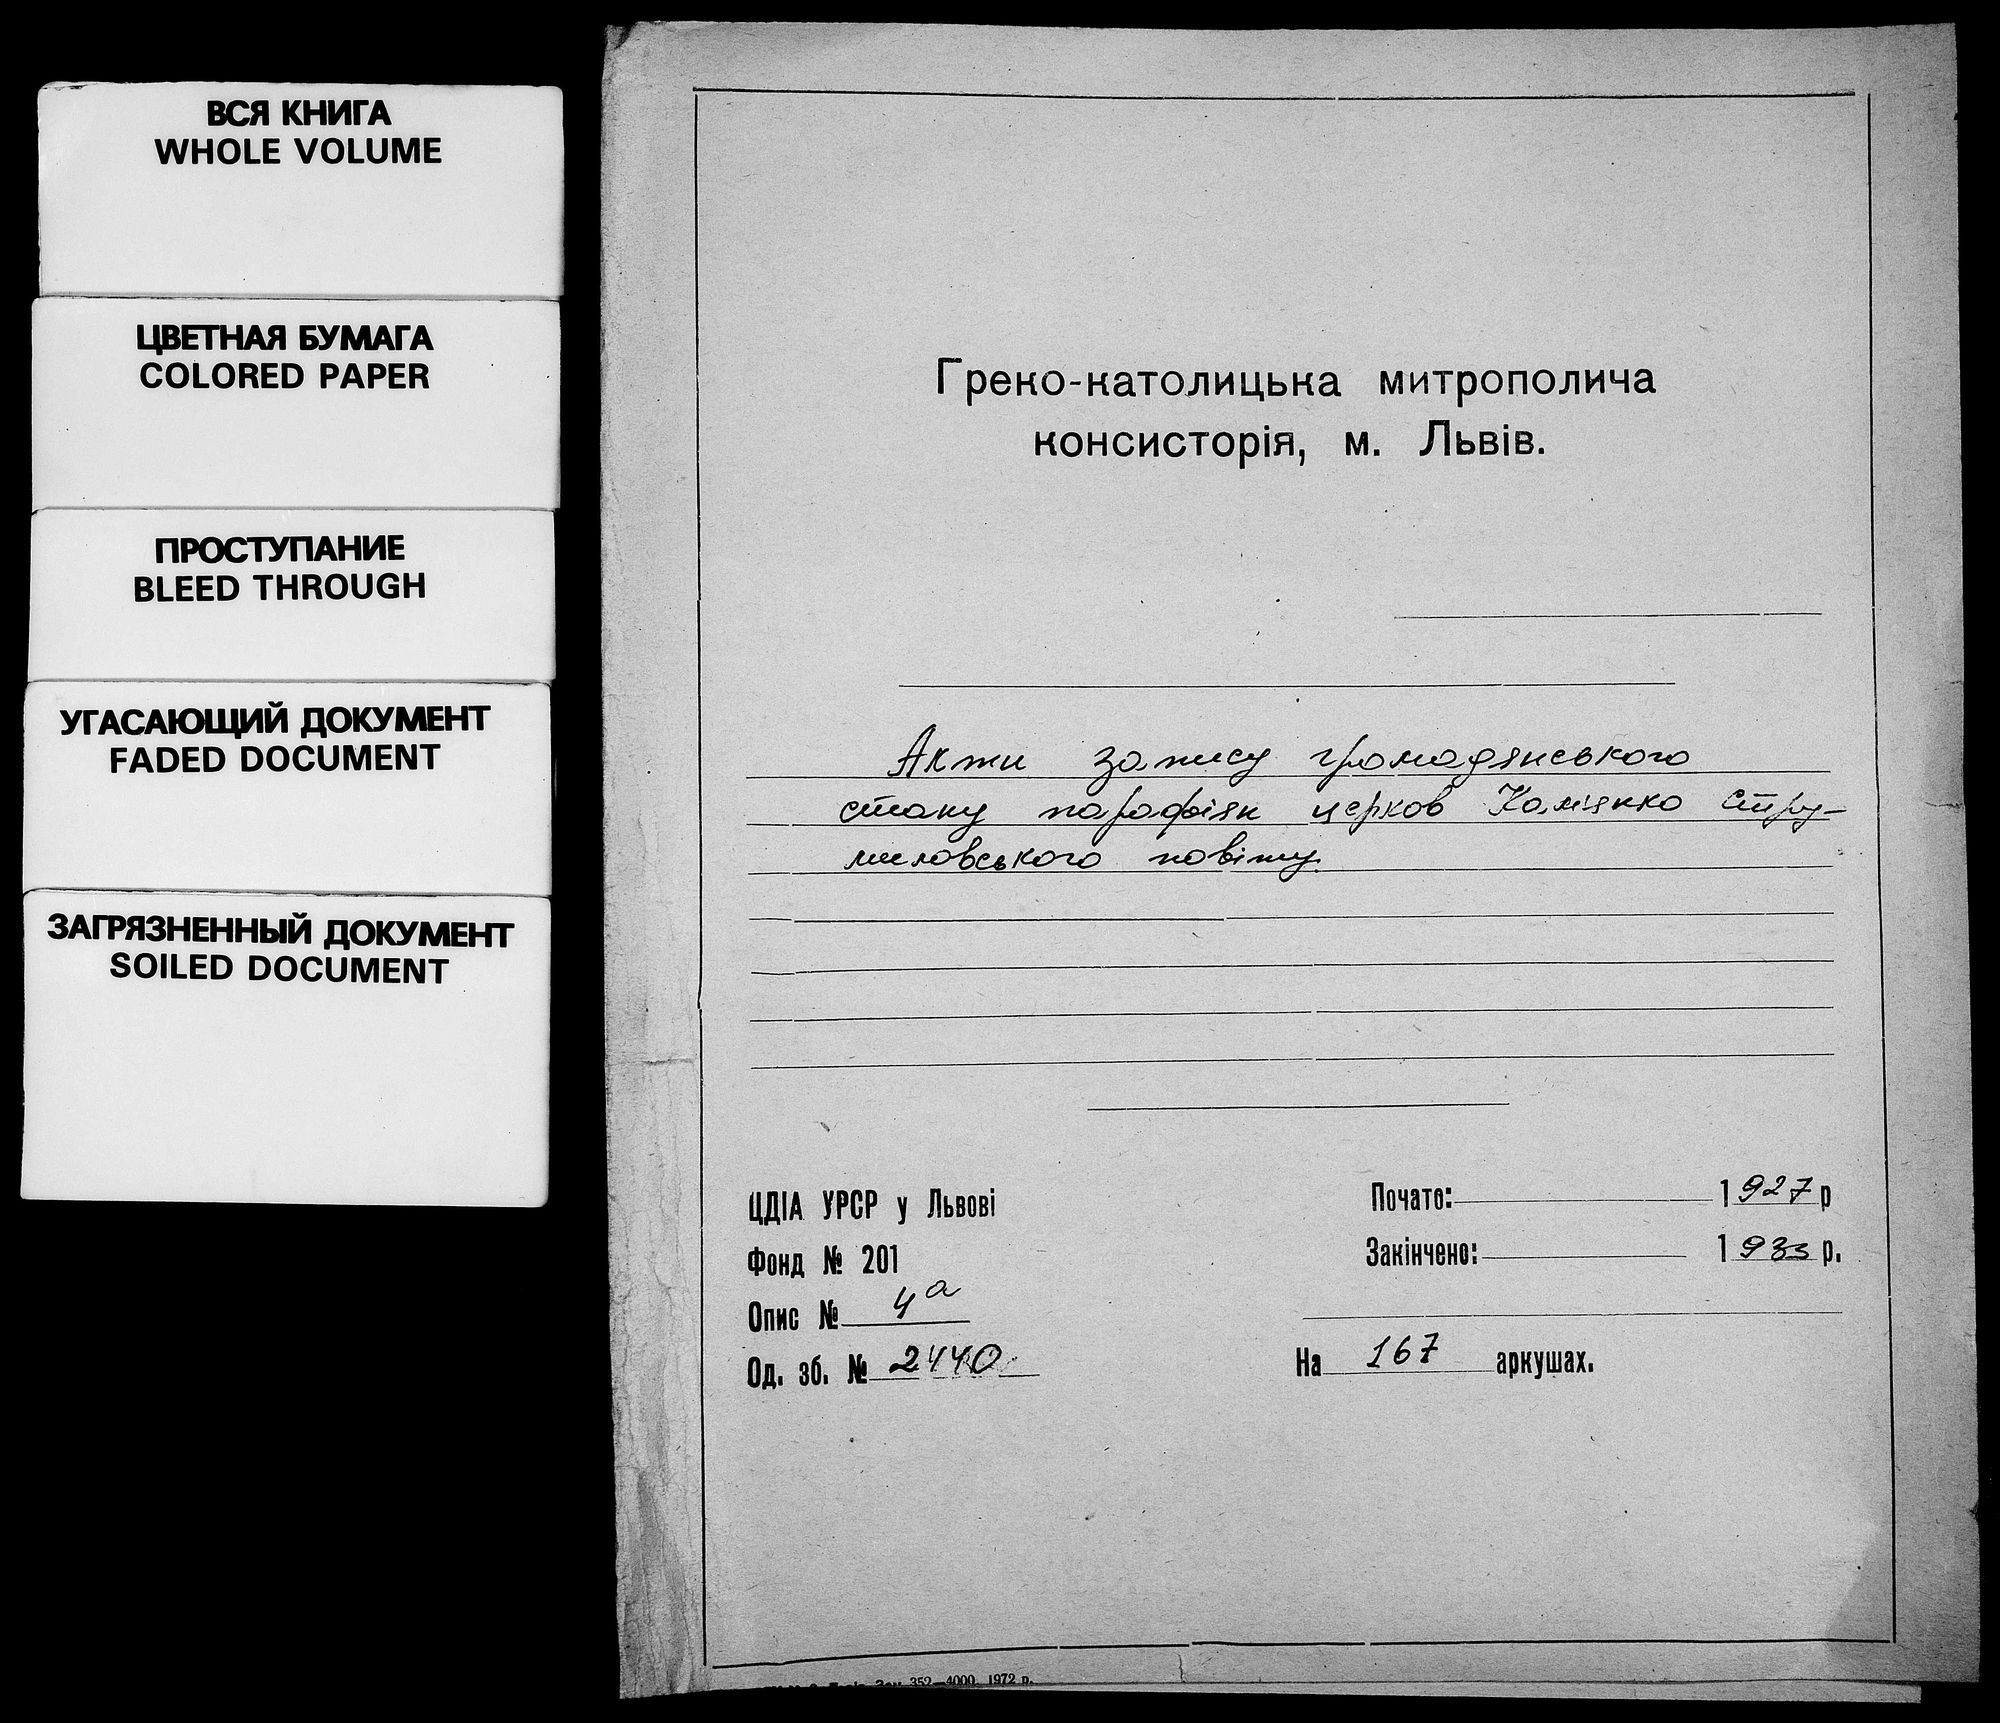 ВСЯ КНИГА
WHOLE VOLUME
ЦВЕТНАЯ БУМАГА
COLORED PAPER
ПРОСТУПАНИЕ
BLEED THROUGH
УГАСАЮЩИЙ ДОКУМЕНТ
FADED DOCUMENT
ЗАГРЯЗНЕННЫЙ ДОКУМЕНТ
SOILED DOCUMENT
Греко-католицька митрополича
консисторія, м. Львів.
Акти запису громадянського
стану парафіян церков Кам'янко Стру-
миловського повіту.
ЦДІА УРСР у Львові
Фонд № 201
Опис № 4а
Од. зб. № 2440
Почато: 1927 р
Закінчено: 1935 р.
На 167 аркушах.
352—4000. 1972 р.